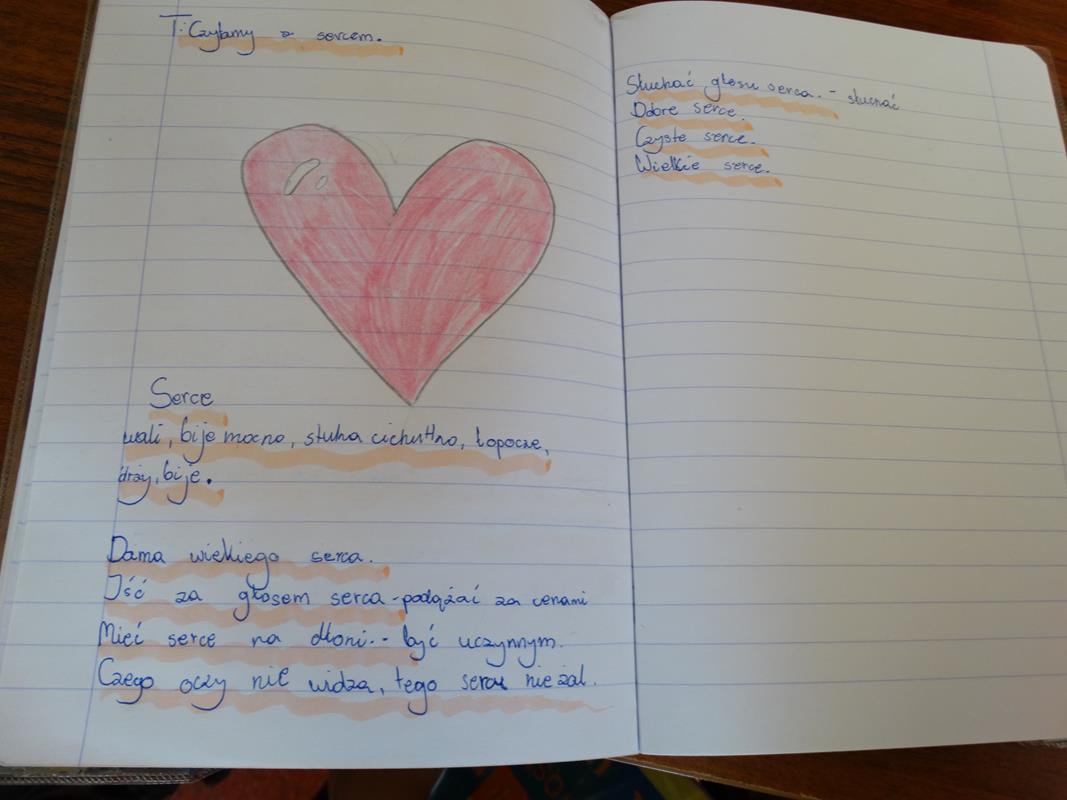 T: Czytamy z sercem.
Serce
wali, bije mocno, stuka cichutko, łopocze,
drży, bije.
Dama wielkiego serca.
Iść za głosem serca - podążać za cenami
Mieć serce na dłoni. - być uczynnym.
Czego oczy nie widzą, tego sercu nie żal.
Słuchać głosu serca. - słuchać
Dobre serce.
Czyste serce.
Wielkie serce.